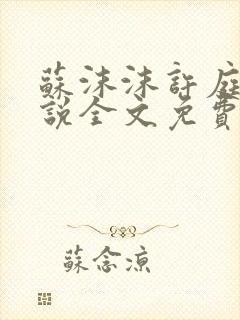 蘇沫沫許庭
說全文免費
蘇念涼